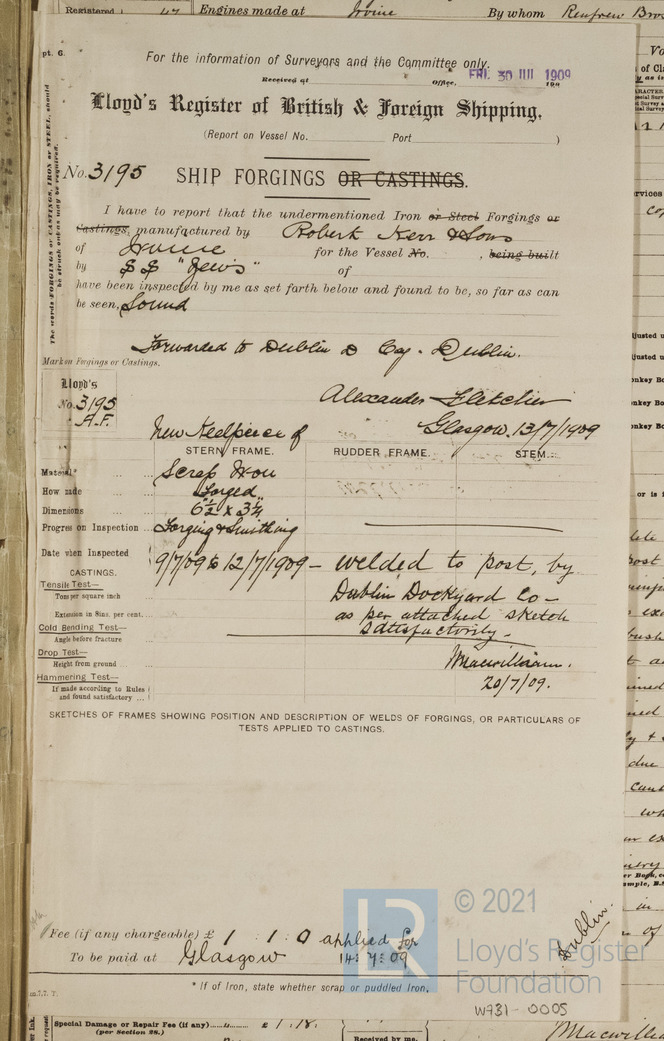 Registered 47 Engines made at Irvine By whom Renfrew Bro
pt. 6.
For the information of Surveyors and the Committee only.
Received at Office, 190
FRI. 30 JUL 1909
Lloyd's Register of British & Foreign Shipping,
(Report on Vessel No. Port )
The words FORGINGS or CASTINGS, IRON or STEEL, should
be struck out as may be required.
No. 3195 SHIP FORGINGS OR CASTINGS.
I have to report that the undermentioned Iron or Steel Forgings or
Castings, manufactured by Robert Kerr & Sons
of Irvine for the Vessel No. , being built
by SS of
have been inspected by me as set forth below and found to be, so far as can
be seen, Sound
Forwarded to Dublin D Coy. Dublin.
Mark on Forgings or Castings.
Lloyd's
No. 3195
A.F.
Alexander Fletcher
Glasgow. 13/7/1909
New Keelpiece of
STERN FRAME. RUDDER FRAME. STEM.
Material* Scrap Iron
How made Forged
Dimensions 6½ x 3¼
Progress on Inspection Forging & Smithing
Date when Inspected 9/7/09 to 12/7/1909 – welded to post, by
Dublin Dockyard Co –
as per attached sketch
satisfactorily –
CASTINGS.
Tensile Test—
Tons per square inch
Extension in 8ins. per cent.
Cold Bending Test—
Angle before fracture
Drop Test—
Height from ground
Hammering Test—
If made according to Rules
and found satisfactory
Macwilliam.
20/7/09.
SKETCHES OF FRAMES SHOWING POSITION AND DESCRIPTION OF WELDS OF FORGINGS, OR PARTICULARS OF
TESTS APPLIED TO CASTINGS.
Fee (if any chargeable) £ 1 : 1 : 0 applied for
To be paid at Glasgow 14:7:09
Dublin.
* If of Iron, state whether scrap or puddled Iron.
© 2021
LR
Lloyd's Register
Foundation
W731-0005
Special Damage or Repair Fee (if any) £ 1 . 18.
(per Section 28.)
Received by me.
Macwillia